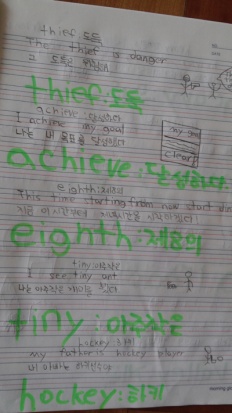 thief 도둑
The thief is danger
그 도둑은 위험해
thief:도둑
achieve:달성하다
I achieve my goal
나는 내 목표를 달성하다
my
clear!
achieve:달성하다
eighth:제8의
This time starting from now start
지금 이 시간부터
eighth:제8의
tiny:아주작은
I see tiny ant
나는 아주작은 개미를 봤다
tiny:아주작은
hockey:하키
my father is hockey player
내 아빠는 하키선수야
hockey:하키